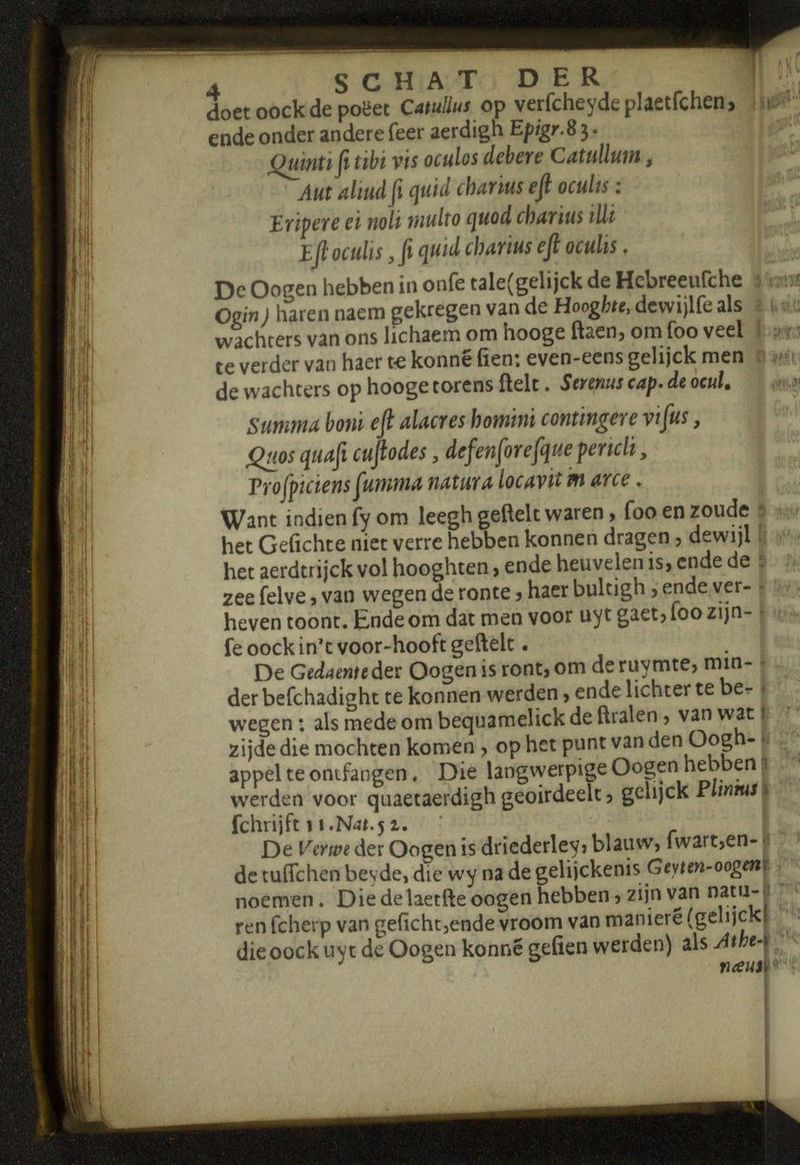 4 SCHAT DER
doet oock de poëet Catullus op verſcheyde plaetſchen,
ende onder andere ſeer aerdigh Epigr.83.
Quinti ſi tibi vis oculos debere Catullum,
Aut aliud ſi quid charius eſt oculis:
Eripere ei noli multo quod charius illi
Eſt oculis, ſi quid charius eſt oculis.
De Oogen hebben in onſe tale(gelijck de Hebreeuſche
Ogin) haren naem gekregen van de Hooghte, dewijlſe als
wachters van ons lichaem om hooge ſtaen, om ſoo veel
te verder van haer te konnē ſien: even-eens gelijck men
de wachters op hooge torens ſtelt. Serenus cap. de ocul.
Summa boni eſt alacres homini contingere viſus,
Quos quaſi cuſtodes, defenſoreſque pericli,
Proſpiciens ſumma natura locavit in arce.
Want indien ſy om leegh geſtelt waren, ſoo en zoude
het Geſichte niet verre hebben konnen dragen, dewijl
het aerdtrijck vol hooghten, ende heuvelen is, ende de
zee ſelve, van wegen de ronte, haer bultigh, ende ver-
heven toont. Ende om dat men voor uyt gaet, ſoo zijn-
ſe oock in't voor-hooft geſtelt.
De Gedaente der Oogen is ront, om de ruymte, min-
der beſchadight te konnen werden, ende lichter te be-
wegen: als mede om bequamelick de ſtralen, van wat
zijde die mochten komen, op het punt van den Oogh-
appel te ontfangen. Die langwerpige Oogen hebben
werden voor quaetaerdigh geoirdeelt, gelijck Plinius
ſchrijft 11.Nat.52.
De Verwe der Oogen is driederley, blauw, ſwart, en-
de tuſſchen beyde, die wy na de gelijckenis Geyten-oogen
noemen. Die de laetſte oogen hebben, zijn van natu-
ren ſcherp van geſicht, ende vroom van manierē (gelijck
die oock uyt de Oogen konnē geſien werden) als Athe-
næus